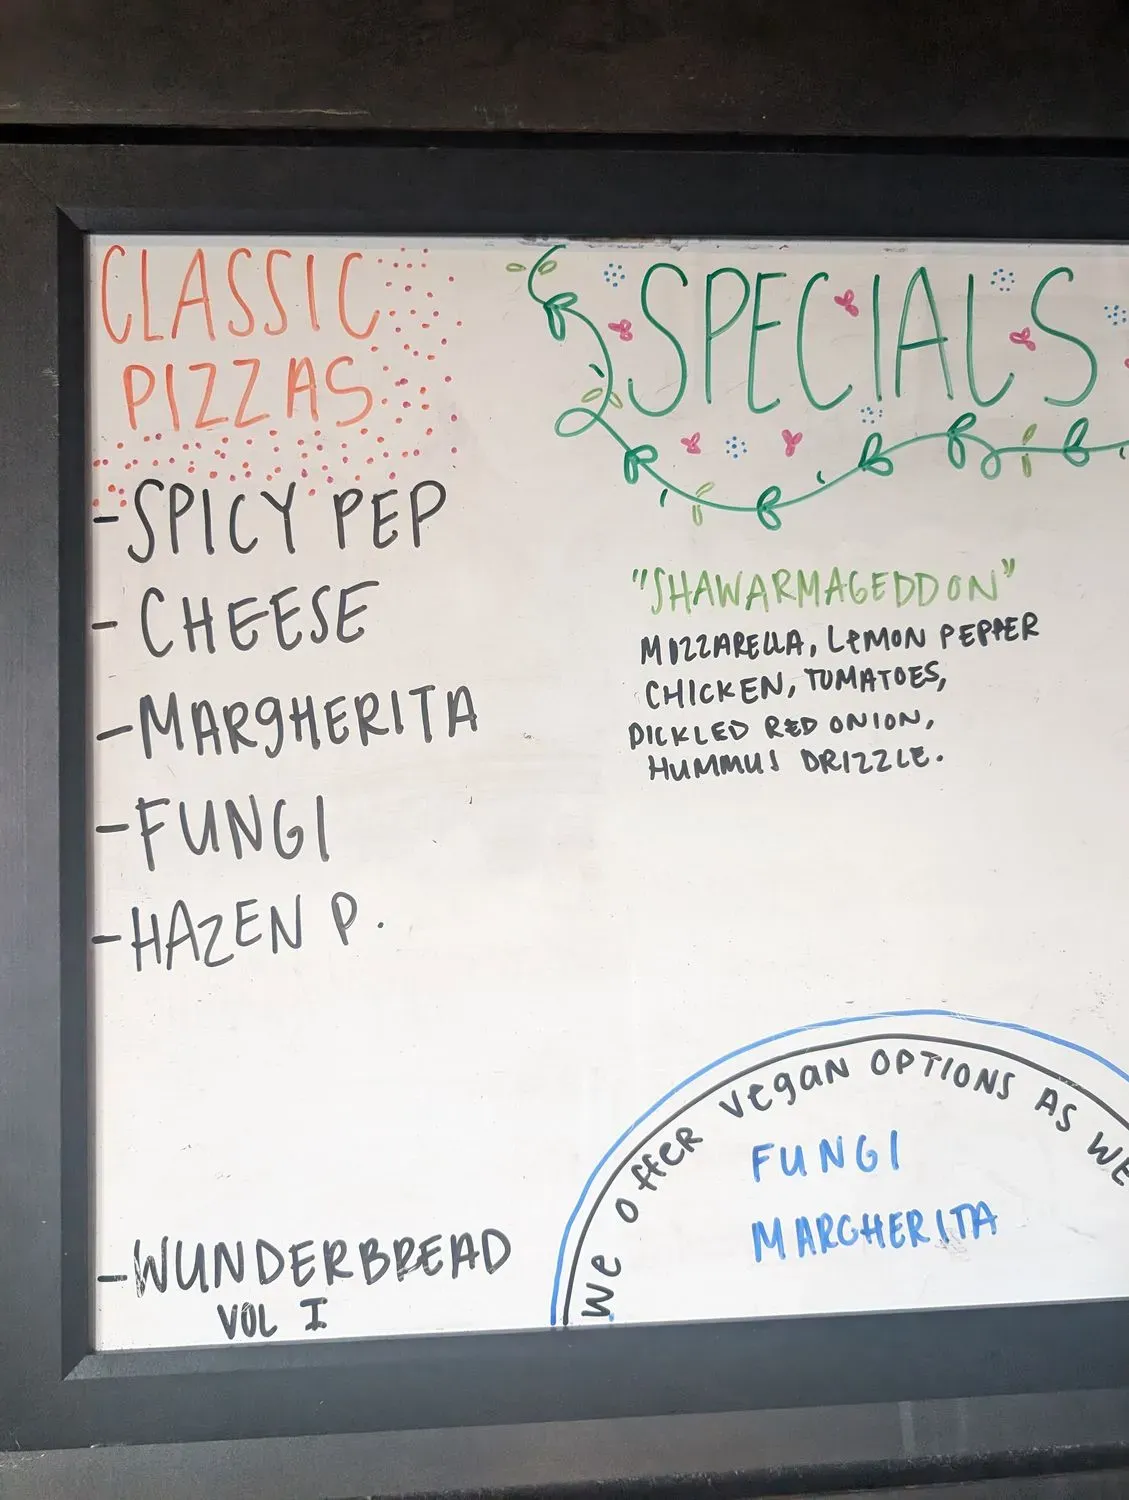 CLASSIC
PIZZAS
-SPICY PEP
-CHEESE
-MARGHERITA
-FUNGI
-HAZEN P.
-WUNDERBREAD
VOL I
SPECIALS
"SHAWARMAGEDDON"
MOZZARELLA, LEMON PEPPER
CHICKEN, TOMATOES,
PICKLED RED ONION,
HUMMUS DRIZZLE.
We offer vegan OPTIONS AS WE
FUNGI
MARGHERITA